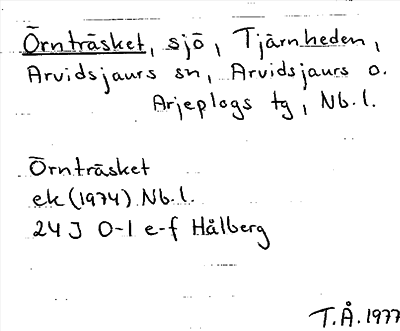 Örnträsket, sjö, Tjärnheden,
Arvidsjaurs sn, Arvidsjaurs o.
Arjeplogs tg, Nb.l.
Örnträsket
ek (1974) Nb.l.
24 J 0-1 e-f Hålberg
T.Å. 1977